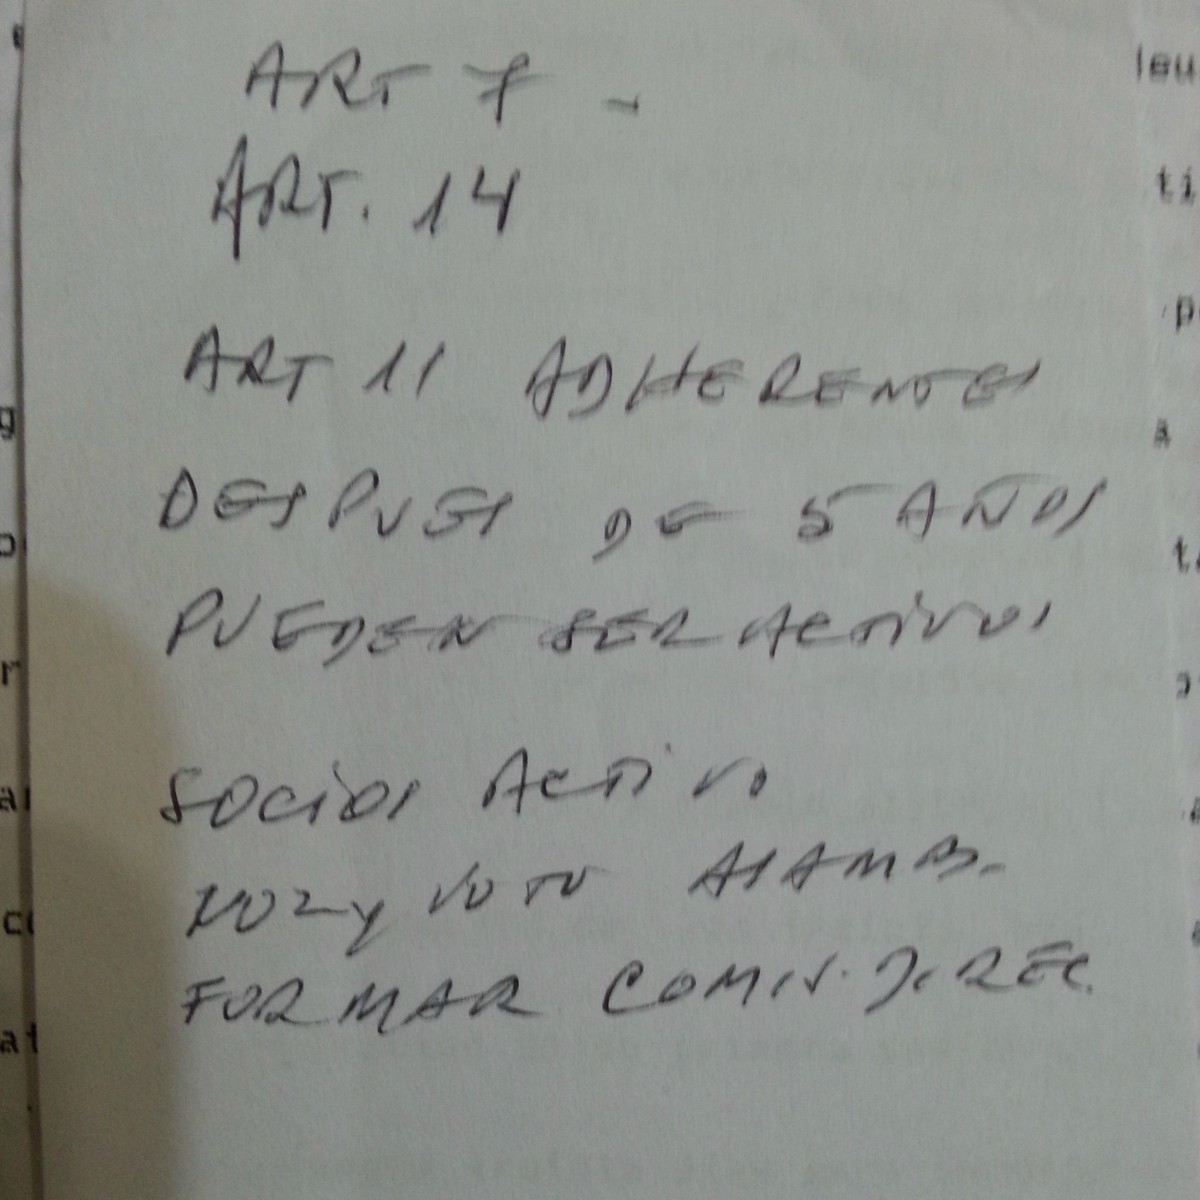 ART 7 -
ART. 14
ART 11 ADHERENTES
DESPUES DE 5 AÑOS
PUEDEN SER ACTIVOS
SOCIOS ACTIVO
VOZ Y VOTO ASAMB.
FORMAR COMIS. DIREC.